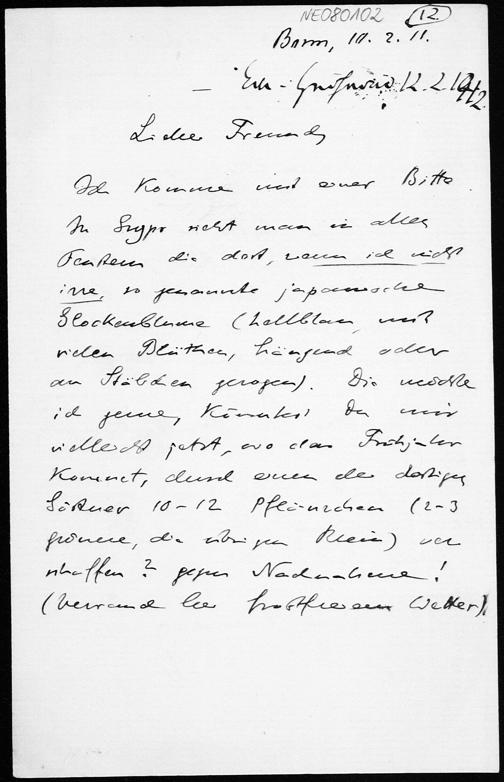 NE080102 12.
Bonn, 10. 2. 11.
12. 2. 1912
Lieber Freund,
Ich komme mit einer Bitte.
In sieht man in allen
Fenstern die dort, wenn ich nicht
irre, so genannte japanische
Glockenblume (hellblau, mit
vielen Blüthen, hängend oder
an Stäbchen gezogen). Die möchte
ich gerne, Könntest Du mir
vielleicht jetzt, wo das Frühjahr
kommt, durch einen der dortigen
Gärtner 10-12 Pflänzchen (2-3
grössere, die übrigen klein) ver
schaffen? gegen Nachnahme!
(Versand bei frostfreiem Wetter).